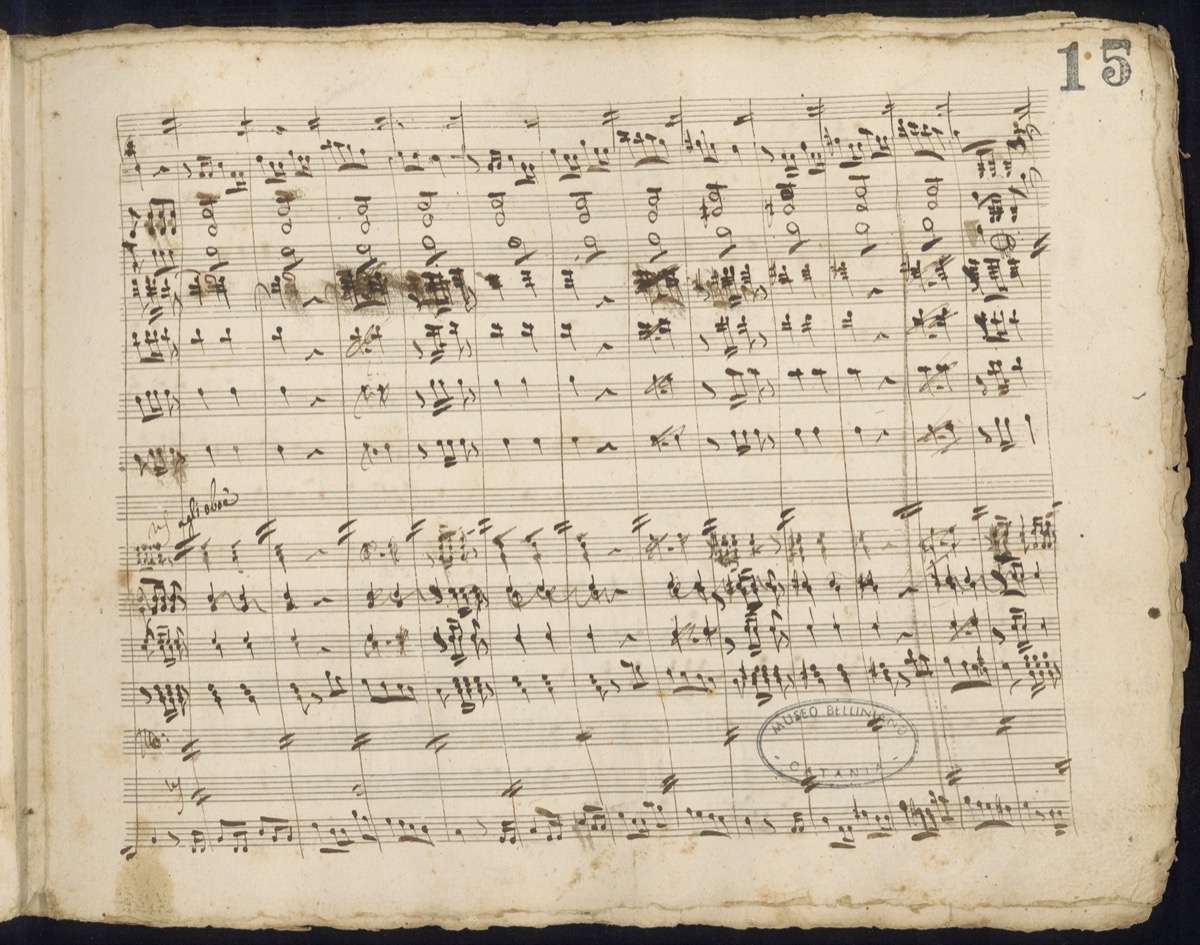 15
agli oboè
MUSEO BELLINIANO
- CATANIA -